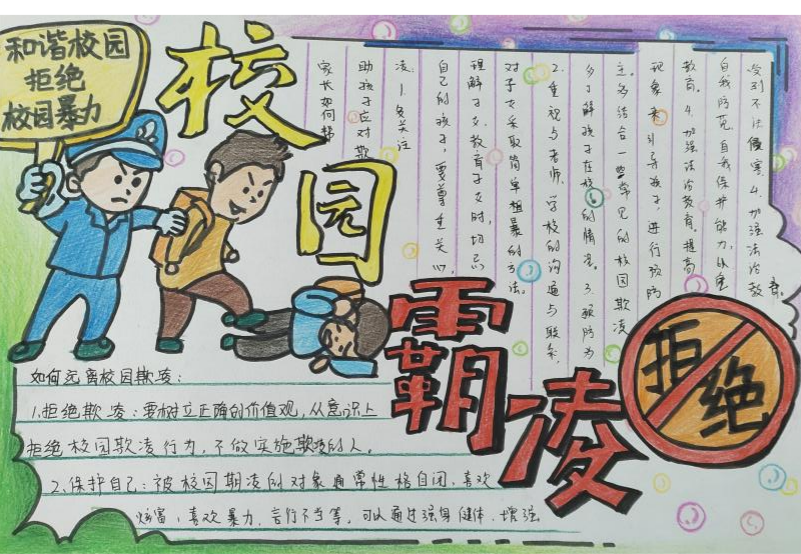 和谐校园
拒绝
校园暴力
校园
霸凌
拒绝
家长如何帮
助孩子应对欺
凌:1.多关注
自己的孩子,要尊重关心,
理解子女,教育子女时,切忌
对子女采取简单粗暴的方法。
2.重视与老师、学校的沟通与联系,
多了解孩子在校的情况。3.预防为
主,多结合一些常见的校园欺凌
现象来引导孩子,进行预防
教育。4.加强法治教育。提高
自我防范,自我保护能力,以免
受到不法侵害4.加强法治教
育。
如何远离校园欺凌:
1.拒绝欺凌:要树立正确的价值观,从意识上
拒绝校园欺凌行为,不做实施欺凌的人。
2.保护自己:被校园期凌的对象通常性格自闭、喜欢
炫富、喜欢暴力、言行不当等。可以通过强身健体、增强